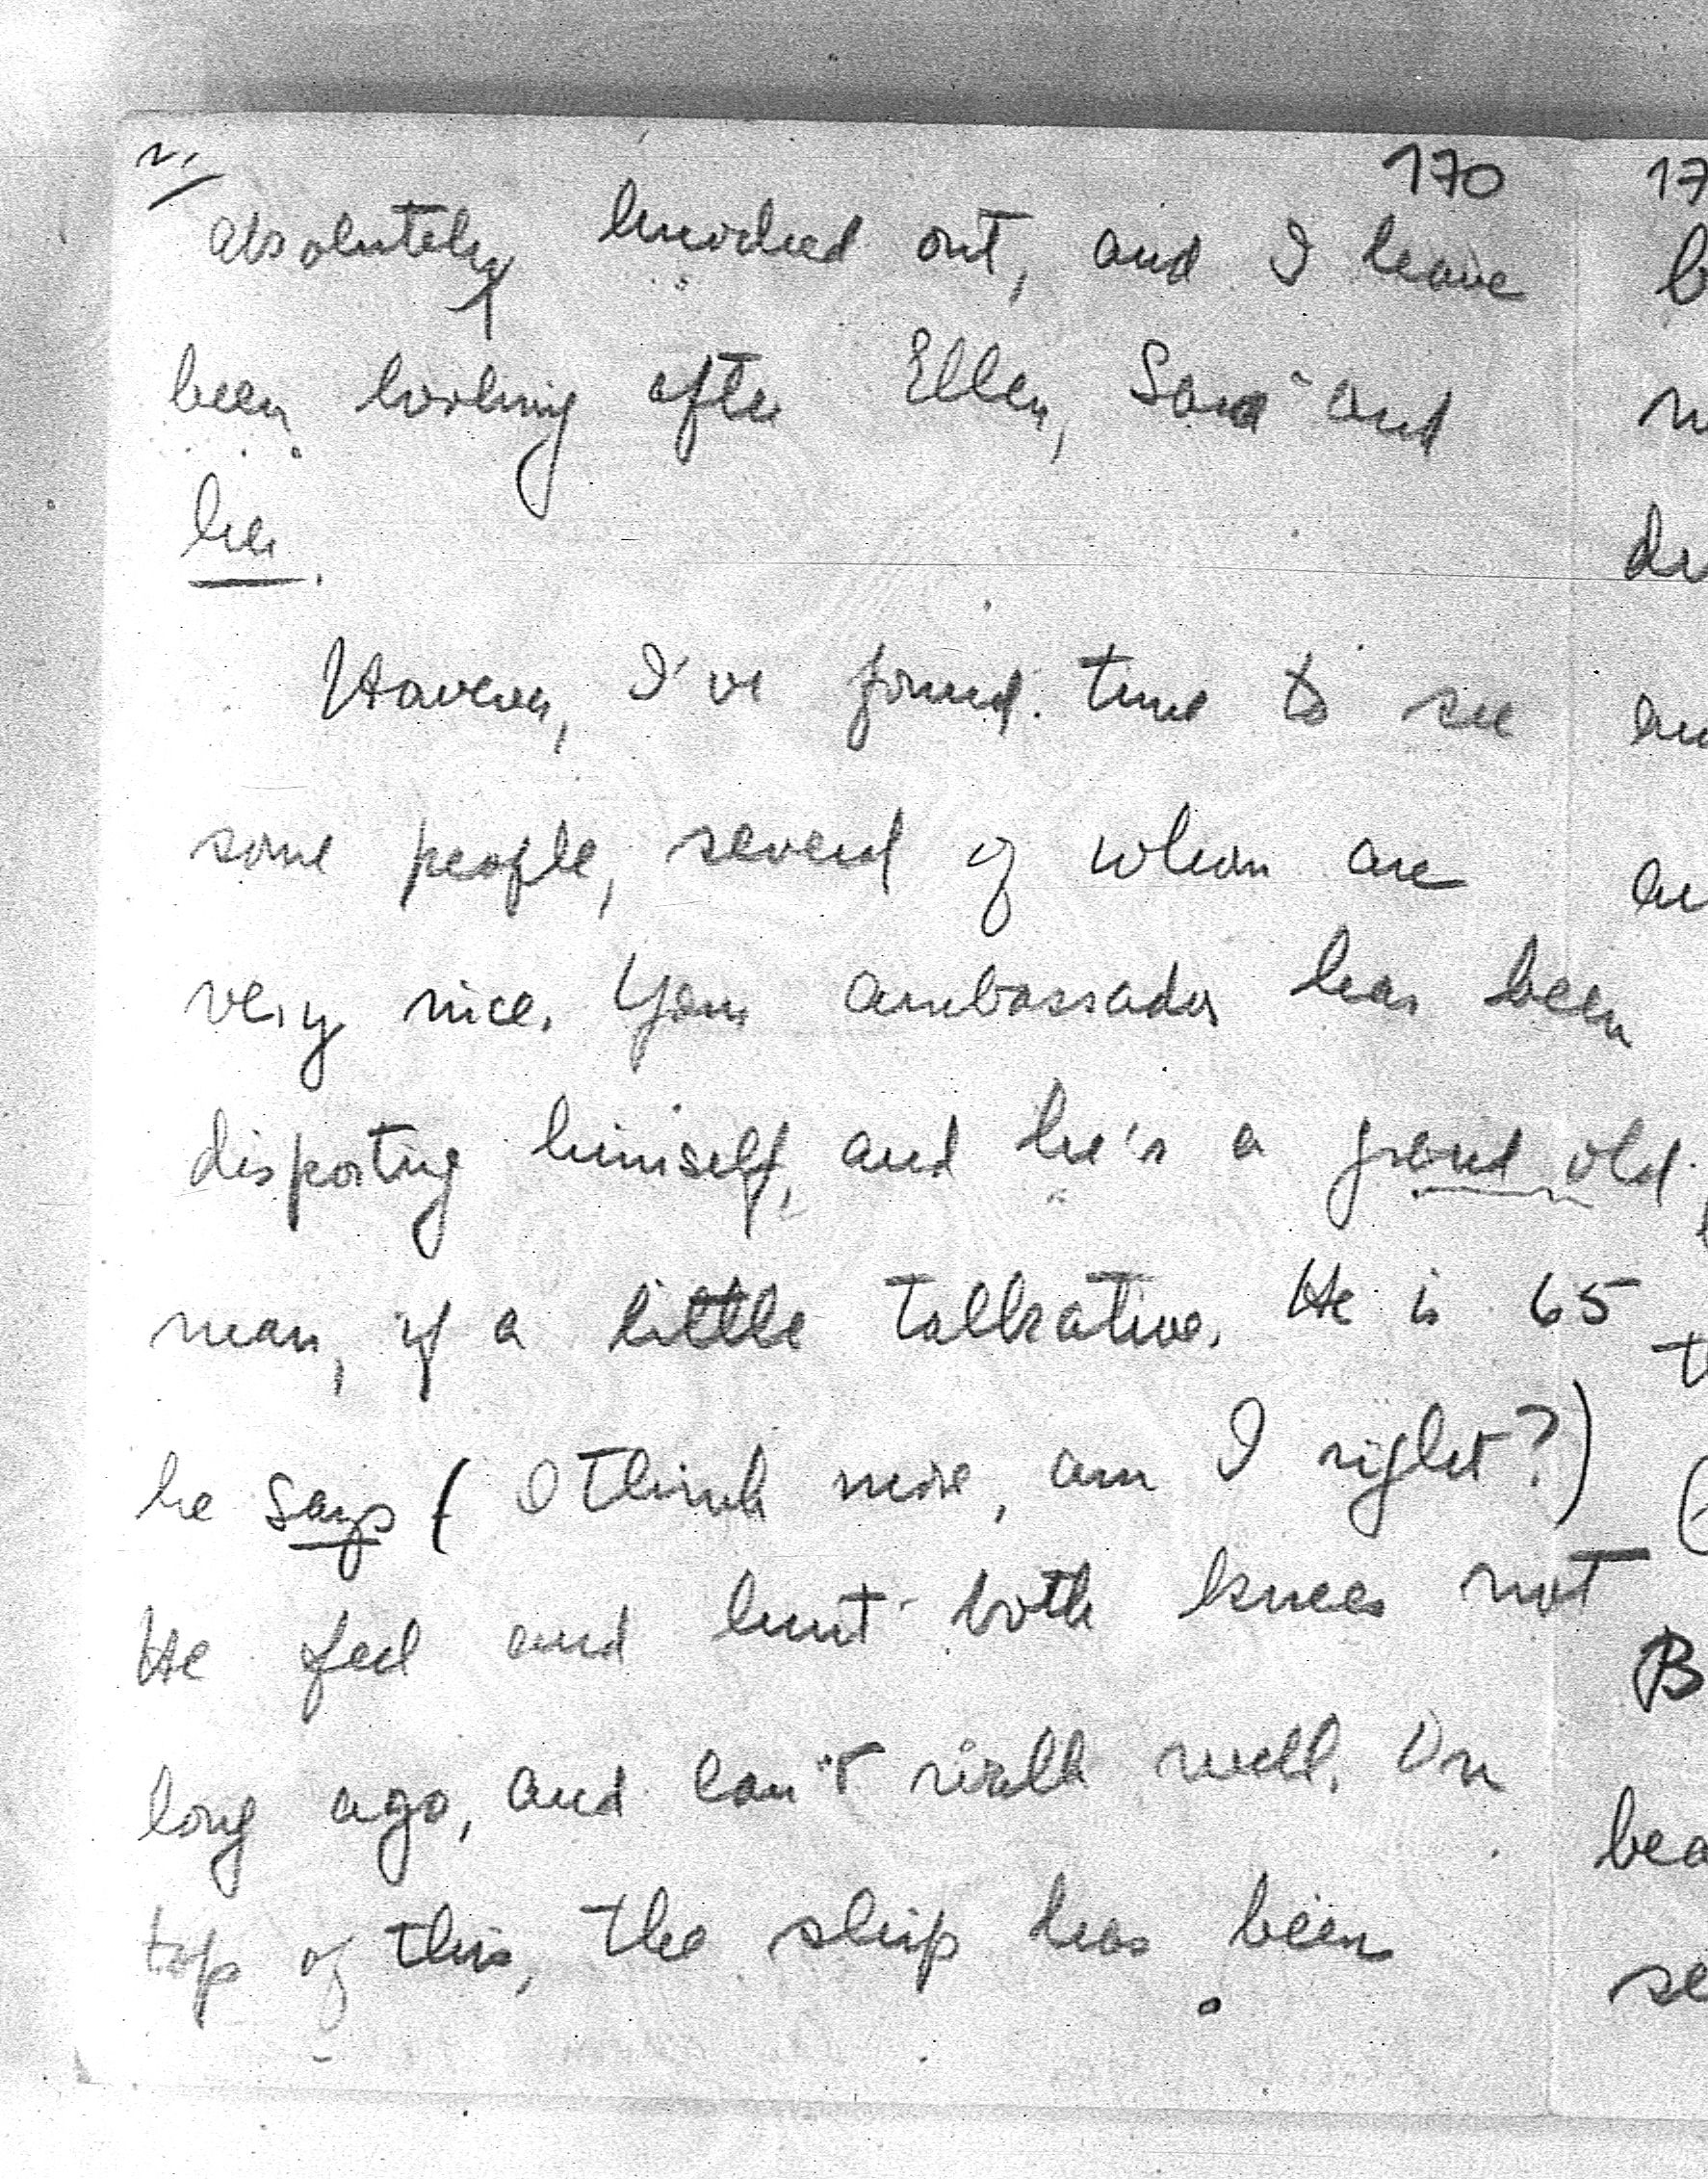 2. 170
absolutely knocked out, and I have
been looking after Ellen, Sara and
her.
However, I've found time to see
some people, several of whom are
very nice. Your ambassador has been
disporting himself, and he's a grand old
man, if a little talkative. He is 65
he says (I think more, am I right?)
He feel and hurt both knees not
long ago, and can't walk well. On
top of this, the ship has been